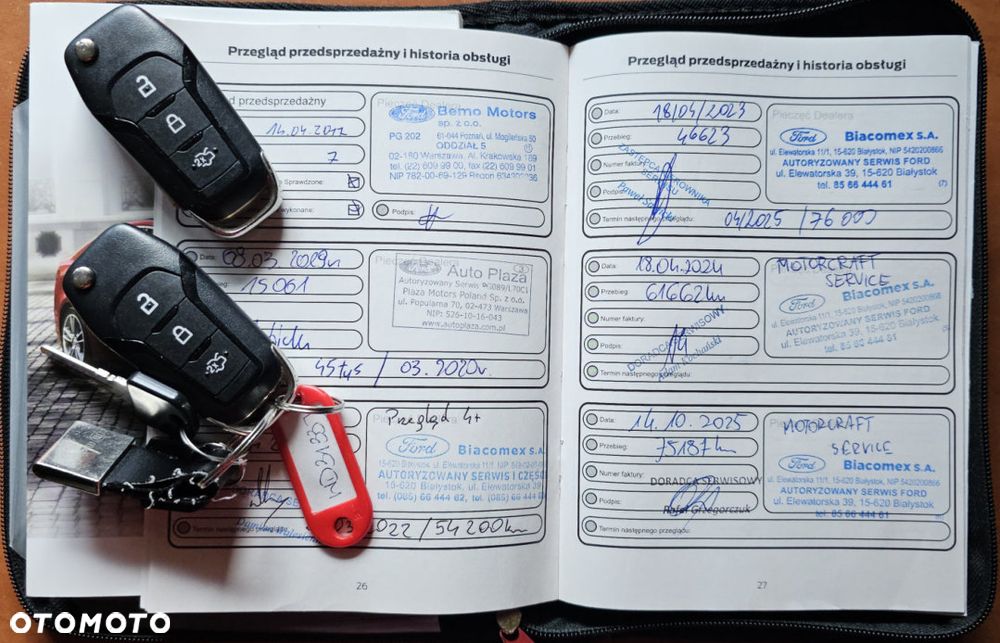 Przegląd przedsprzedażny i historia obsługi
d przedsprzedażny
Pieczęć Dealera
Ford Bemo Motors
sp. z o.o.
PG 202 61-044 Poznań, ul.
ODDZIAŁ 5
02-180 Warszawa, Al. Krakowska 189
tel. (22) 609 99 00, fax (22) 609 99 01
NIP 782-00-69-129
7
Sprawdzone:
Podpis:
Data: 2019r
15061
Ford Auto Plaza
Autoryzowany Serwis
Plaza Motors Poland Sp. z o.o.
ul. Popularna 70, 02-473 Warszawa
NIP: 526-10-16-043
www.autoplaza.com.pl
45tyś / 03.2020r.
Przegląd 4+
Ford Biacomex S.A.
AUTORYZOWANY SERWIS I
15-620 Białystok, ul. Elewatorska
tel. (085) 66 444 62, tel.
Termin następnego
022 / 54 200km
26
Przegląd przedsprzedażny i historia obsługi
Data: 18/04/2023
Przebieg: 46623
Numer faktury:
ZASTĘPCA KIEROWNIKA
SERWISU
Podpis:
Paweł
Termin następnego przeglądu: 04/2025 / 76 000
Pieczęć Dealera
Ford Biacomex S.A.
ul. Elewatorska 11/1, 15-620 Białystok, NIP 5420200866
AUTORYZOWANY SERWIS FORD
ul. Elewatorska 39, 15-620 Białystok
tel. 85 66 444 61
Data: 18.04.2024
Przebieg: 61662km
Numer faktury:
Podpis:
DORADCA SERWISOWY
Adam
Termin następnego przeglądu:
MOTORCRAFT
SERVICE
Ford Biacomex S.A.
AUTORYZOWANY SERWIS FORD
ul. Elewatorska 39, 15-620 Białystok
tel. 85 66 444 61
Data: 14.10.2025
Przebieg: 75187km
Numer faktury:
DORADCA SERWISOWY
Podpis:
Rafał Grzegorczuk
Termin następnego przeglądu:
MOTORCRAFT
SERVICE
Ford Biacomex S.A.
ul. Elewatorska 11/1, 15-620 Białystok, NIP 5420200866
AUTORYZOWANY SERWIS FORD
ul. Elewatorska 39, 15-620 Białystok
tel. 85 66 444 61
27
OTOMOTO